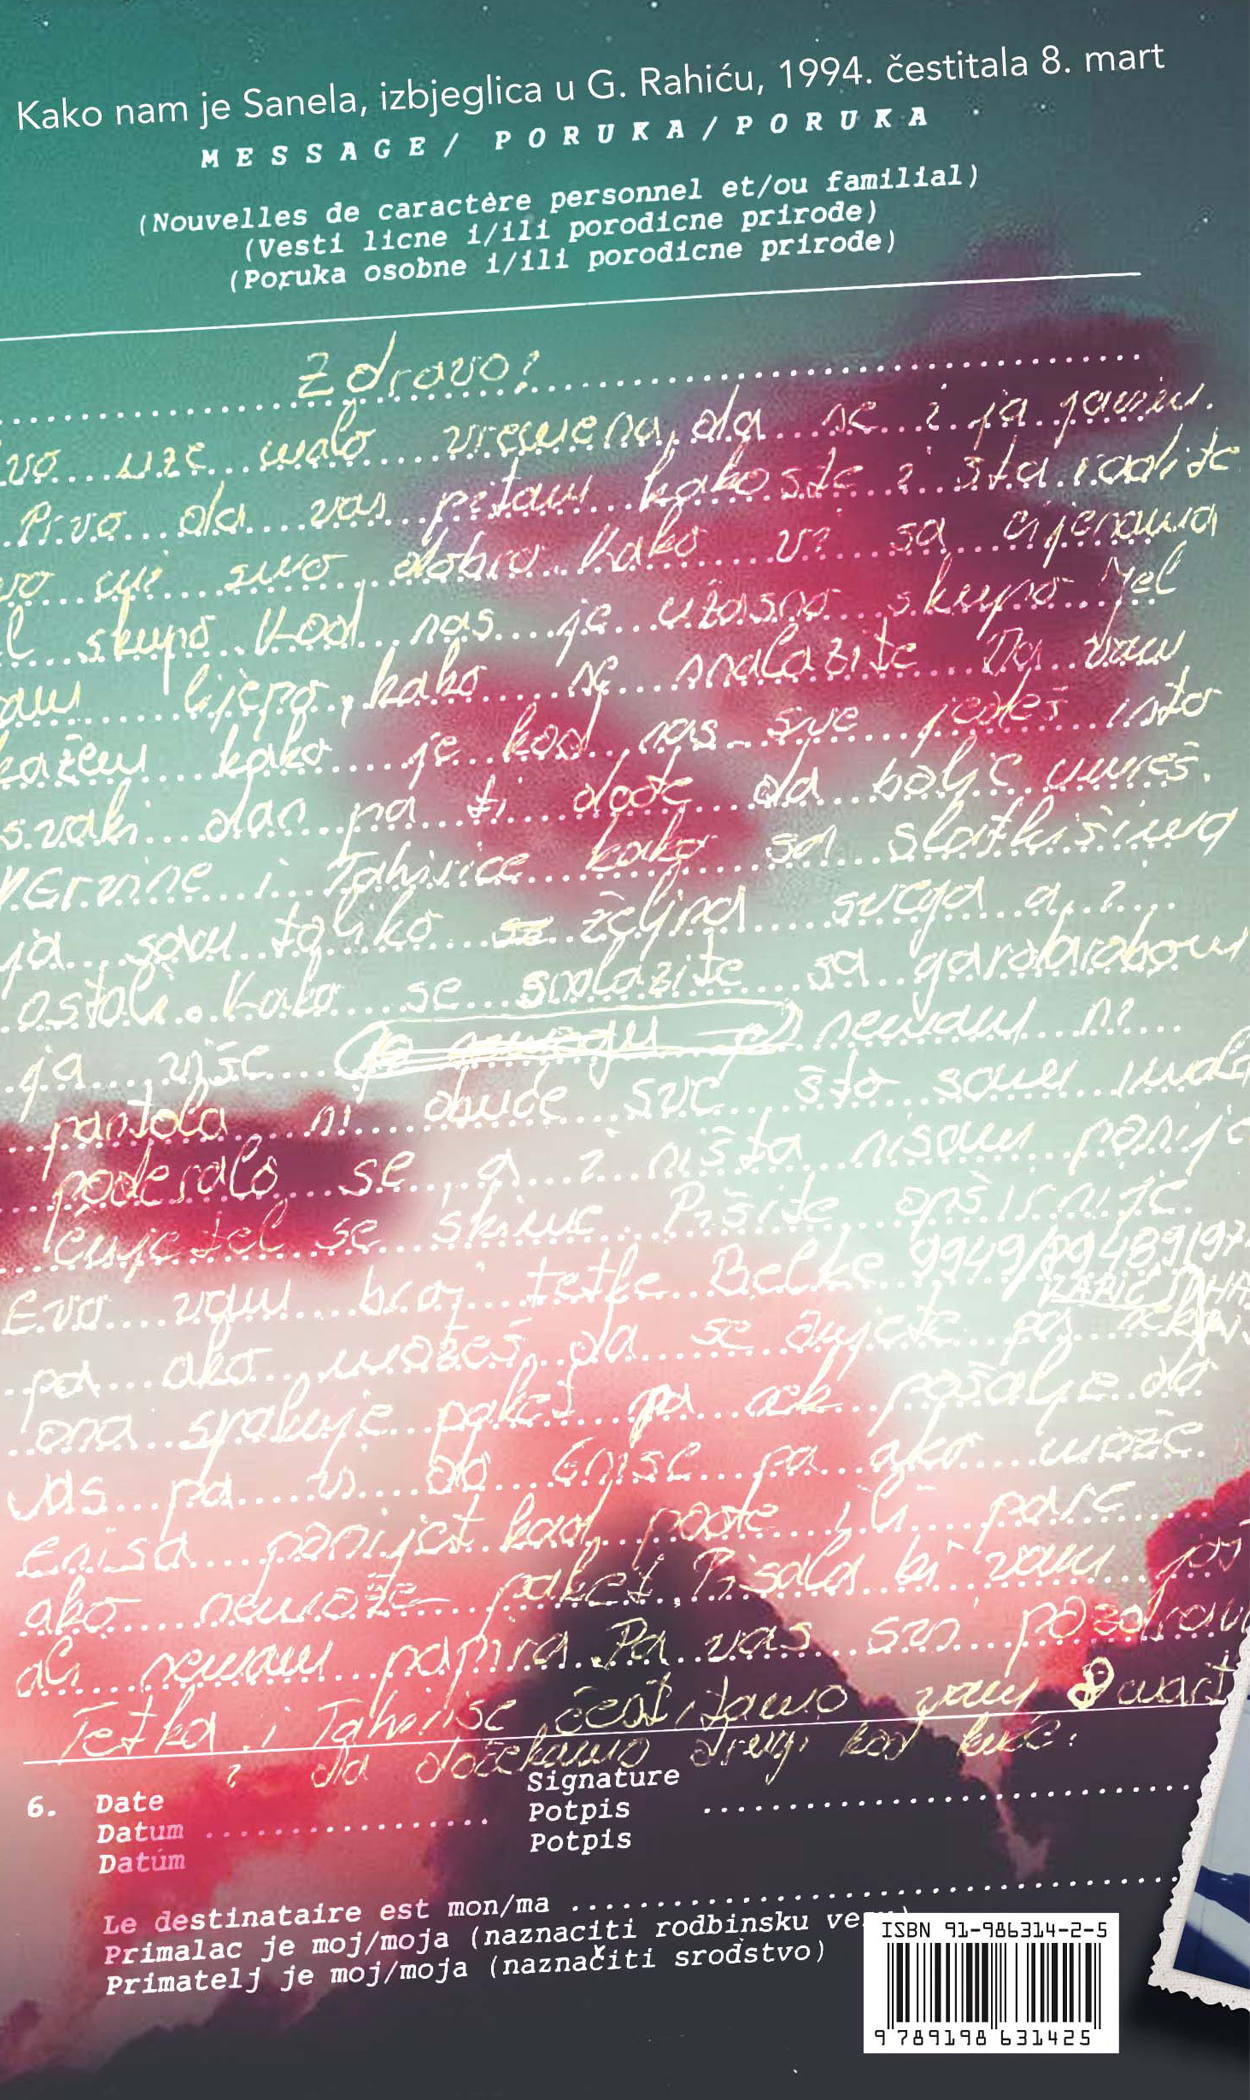 Kako nam je Sanela, izbjeglica u G. Rahiću, 1994. čestitala 8. mart
MESSAGE/ PORUKA/PORUKA
(Nouvelles de caractère personnel et/ou familial)
(Vesti licne i/ili porodicne prirode)
(Poruka osobne i/ili porodicne prirode)
Zdravo!
vo uze malo vremena, da se i ja javim.
Prvo da vas pitam kako ste i šta radite
vo mi smo dobro. Kako vi sa cijenama
l skupo. Kod nas je užasno skupo. Jel
am lijepo, kako se snalazite Da vam
kažem kako je kod nas sve jedeš isto
svaki dan pa ti dođe da bolje umreš.
i Tahirice kako sa slatkišima
ja sam toliko željna svega a i
ostali. Kako se snalazite sa garabom
ja više nemam ni
pantola ni obuće sve što sam
poderalo se a i ništa nisam
se skine. Pišite opširnije.
Evo vam broj tetke Belke 9949/
pa ako možeš da se čujete pa
ona spakuje paket pa nek pošalje do
vas pa vi do Enise pa ako može
Enisa ponijet kad pođe ili pare
ako nemože paket. Pisala bi vam još
ali nemam papira. Pa vas svi pozdrav
Tetka i Tahirise čestitamo vam 8 mart
i da dočekamo drugi kod kuće.
6. Date
Datum
Datúm
Signature
Potpis
Potpis
Le destinataire est mon/ma
Primalac je moj/moja (naznaciti rodbinsku
Primatelj je moj/moja (naznačiti srodstvo)
ISBN 91-986314-2-5
9 789198 631425